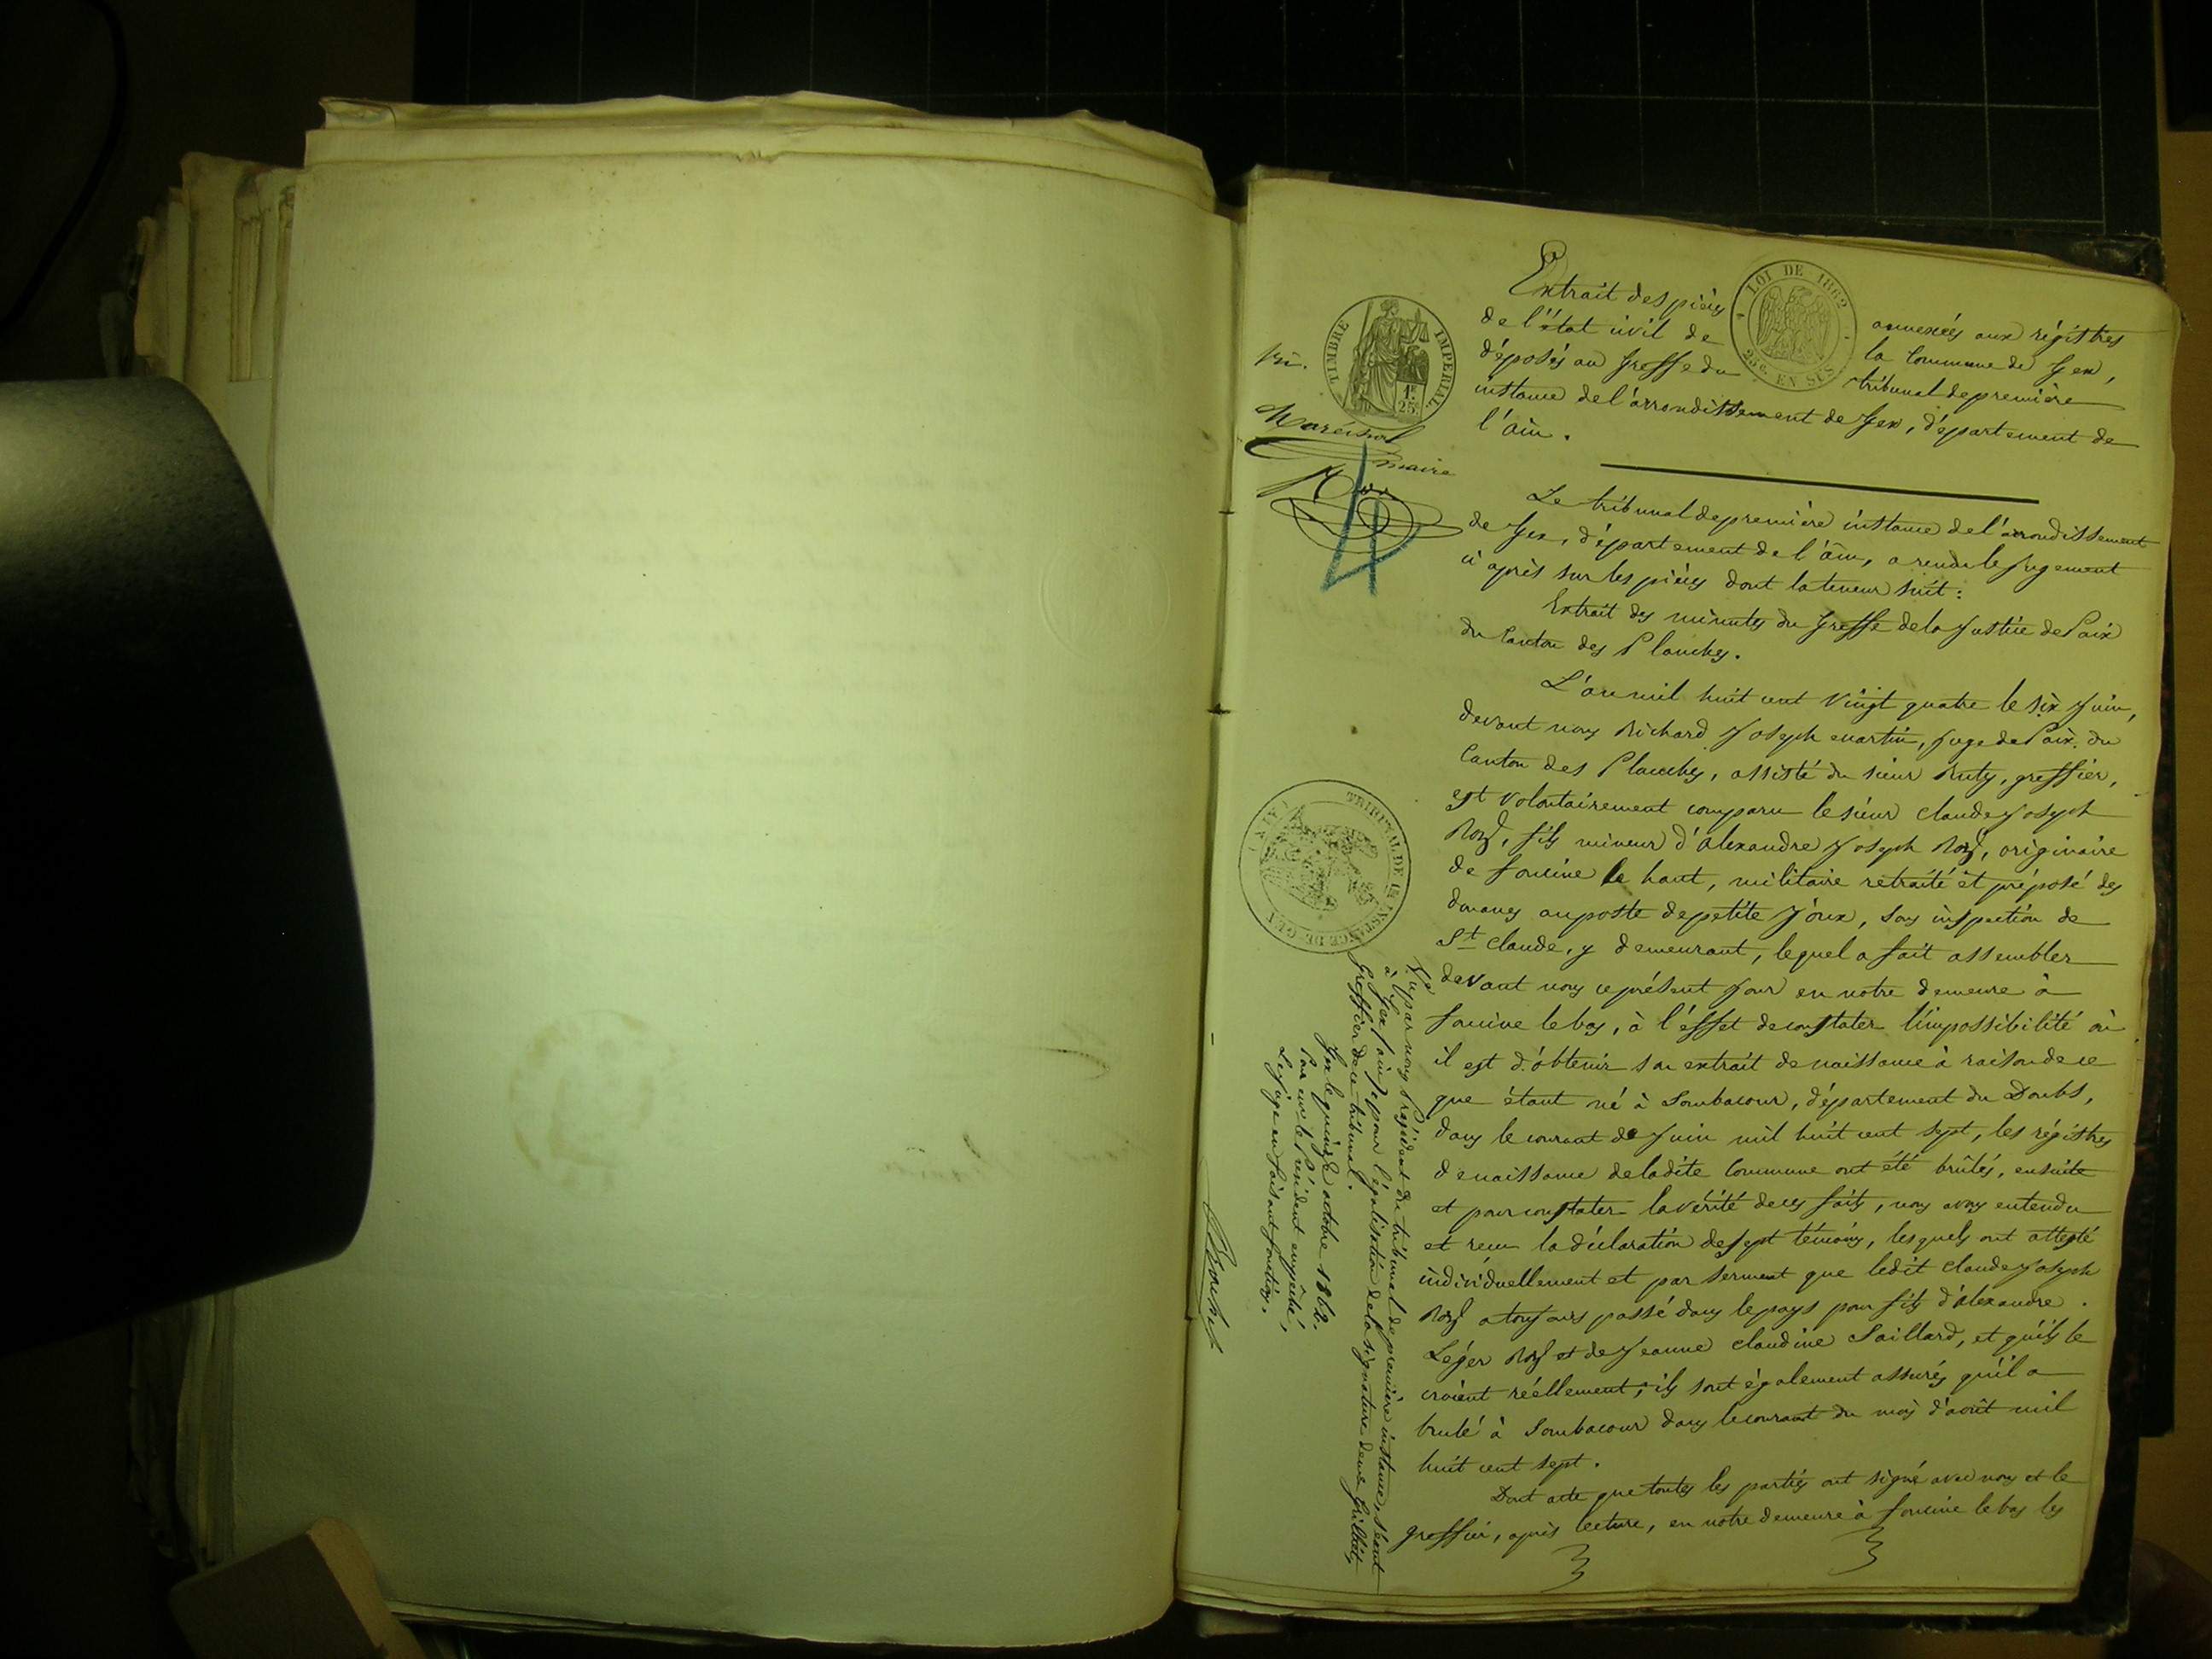 Extrait des pièces annexées aux régistres
de l'état civil de la Commune de Gex,
déposés au Greffe du tribunal de première
instance de l'arrondissement de Gex, département de
l'ain.
TIMBRE IMPERIAL
1F. 25c.
LOI DE 1862
25c. EN SUS
maire
4
Le tribunal de première instance de l'arrondissement
de Gex, département de l'ain, a rendu le jugement
ci après sur les pièces dont la teneur suit :
Extrait des minutes du Greffe de la Justice de Paix
du Canton des Planches.
L'an mil huit cent vingt quatre le six Juin,
devant nous Richard Joseph martin, Juge de Paix du
Canton des Planches, assisté du sieur Ruty, greffier,
est volontairement comparu le sieur Claude Joseph
fils mineur d'Alexandre Joseph originaire
de foncine le haut, militaire retraité et préposé des
douanes au poste de petite Joux, sous inspection de
St Claude, y demeurant, lequel a fait assembler
devant nous ce présent jour en notre demeure à
foncine le bas, à l'effet de constater l'impossibilité où
il est d'obtenir son extrait de naissance à raison de ce
que étant né à Sombacour, département du Doubs,
dans le courant de Juin mil huit cent sept, les régistres
de naissance de ladite Commune ont été brûlés, ensuite
et pour constater la vérité de ces faits, nous avons entendu
et reçu la déclaration de sept témoins, lesquels ont attesté
individuellement et par serment que ledit Claude Joseph
a toujours passé dans le pays pour fils d'Alexandre
Léger et de Jeanne Claudine Saillard, et qu'ils le
croient réellement ; ils sont également assurés qu'il a
brulé à Sombacour dans le courant du mois d'août mil
huit cent sept.
Dont acte que toutes les parties ont signé avec nous et le
greffier, après lecture, en notre demeure à foncine le bas les
TRIBUNAL DE 1RE INSTANCE DE GEX (AIN)
Vu par nous Président du tribunal de première instance, séant
à Gex (ain) pour légalisation de la signature de Me Grillet,
Greffier de ce tribunal.
Gex le quinze octobre 1862.
Pour mr le Président empêché,
Le juge en faisant fonctions.